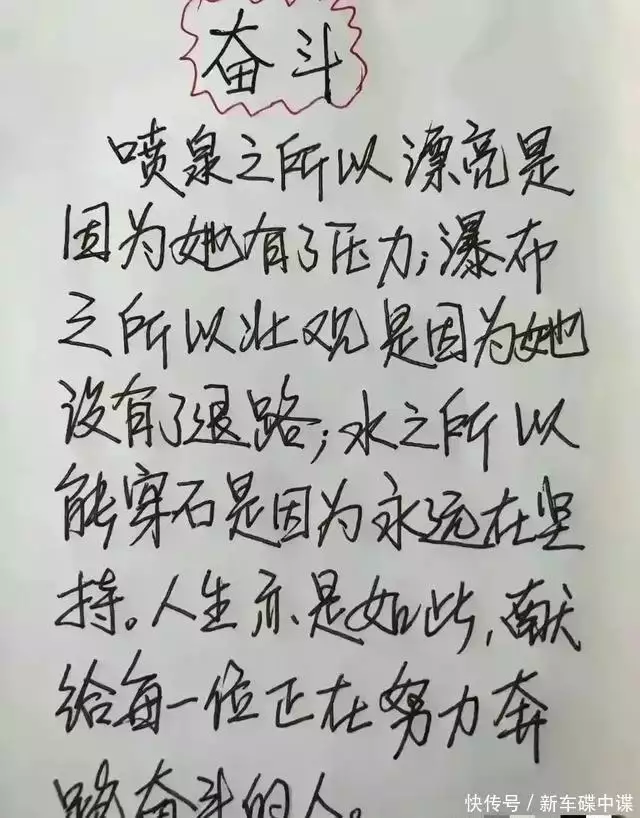 奋斗
喷泉之所以漂亮是
因为她有了压力;瀑布
之所以壮观是因为她
没有了退路;水之所以
能穿石是因为永远在坚
持。人生亦是如此,献
给每一位正在努力奔
跑奋斗的人。
快传号/新车碟中谍